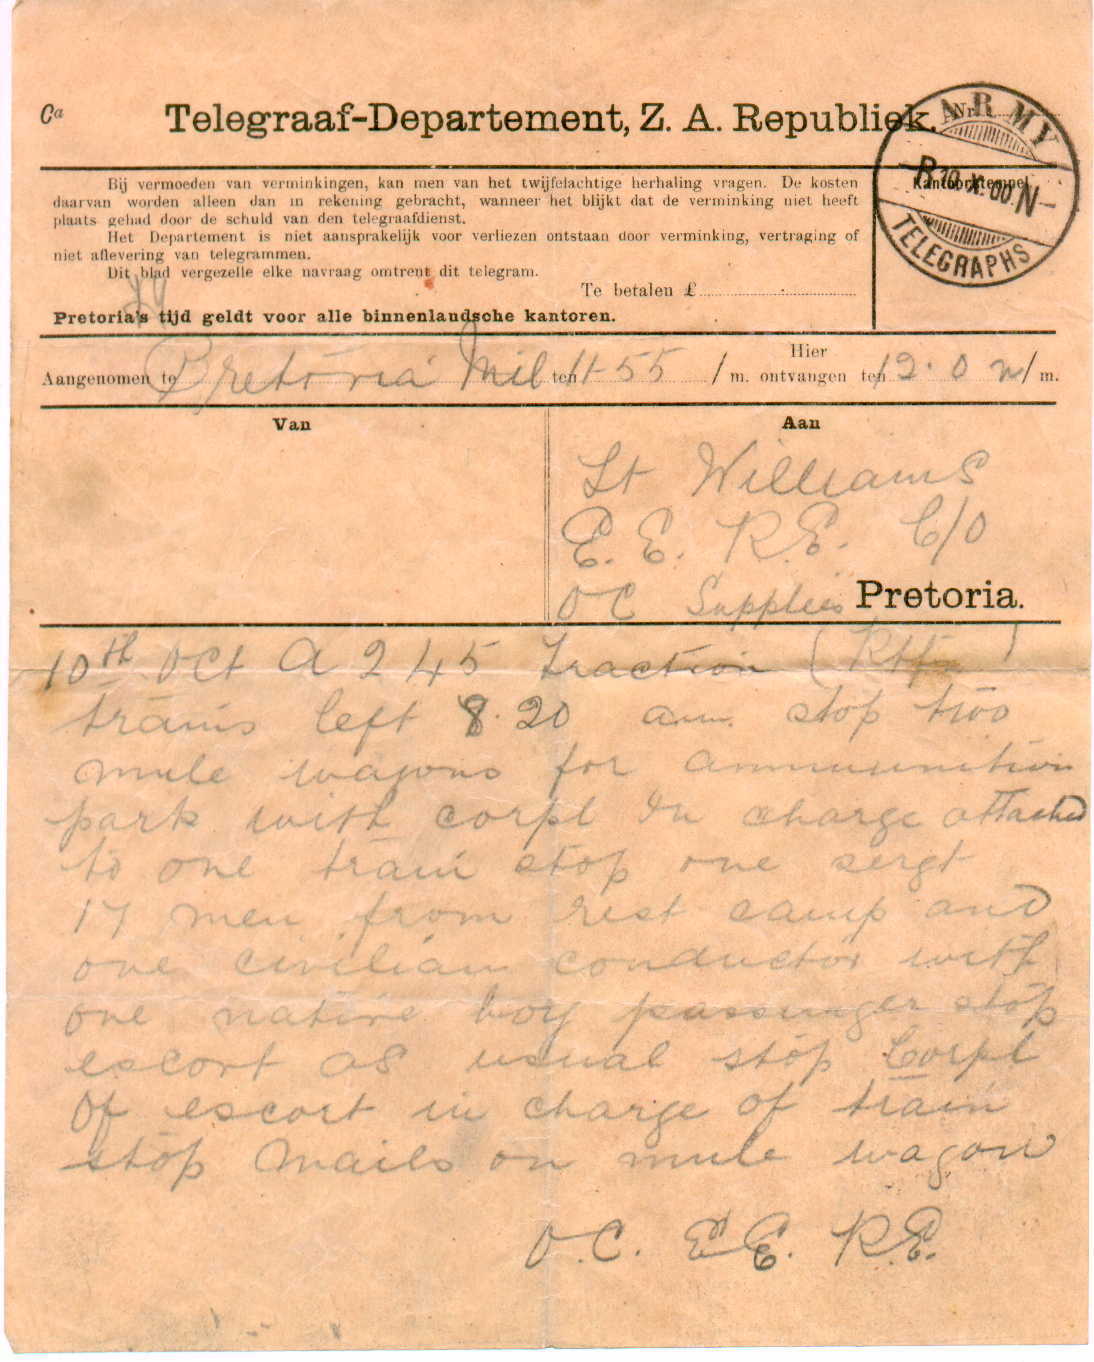 Ca
Telegraaf-Departement, Z. A. Republiek.
Nr.
ARMY
R 10.X.00.N
TELEGRAPHS
Kantoorstempel
Bij vermoeden van verminkingen, kan men van het twijfelachtige herhaling vragen. De kosten
daarvan worden alleen dan in rekening gebracht, wanneer het blijkt dat de verminking niet heeft
plaats gehad door de schuld van den telegraafdienst.
Het Departement is niet aansprakelijk voor verliezen ontstaan door verminking, vertraging of
niet aflevering van telegrammen.
Dit blad vergezelle elke navraag omtrent dit telegram.
Te betalen £
Pretoria's tijd geldt voor alle binnenlandsche kantoren.
Aangenomen te Pretoria Mil ten 11-55 /m. Hier ontvangen ten 12.0 n/m.
Van
Aan
Lt Williams
E. E. R.E. C/O
OC Supplies Pretoria.
10th Oct A 245 Traction
trains left 8.20 am. stop two
mule wagons for ammunition
park with corpl in charge attached
to one train stop one sergt
17 men from rest camp and
one civilian conductor with
one native boy passenger stop
escort as usual stop Corpl
of escort in charge of train
stop Mails on mule wagon
O.C. E.E. R.E.